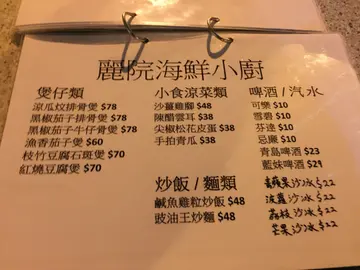 麗院海鮮小廚
煲仔類
涼瓜炆排骨煲 $78
黑椒茄子排骨煲 $78
黑椒茄子牛仔骨煲 $78
漁香茄子煲 $60
枝竹豆腐石斑煲 $70
紅燒豆腐煲 $70
小食涼菜類
沙薑雞腳 $48
陳醋雲耳 $38
尖椒松花皮蛋 $38
手拍青瓜 $38
炒飯 / 麵類
鹹魚雞粒炒飯 $48
豉油王炒麵 $48
啤酒 / 汽水
可樂 $10
雪碧 $10
芬達 $10
忌廉 $10
青島啤酒 $23
藍妹啤酒 $29
青蘋果沙冰 $22
菠蘿沙冰 $22
荔枝沙冰 $22
芒果沙冰 $22